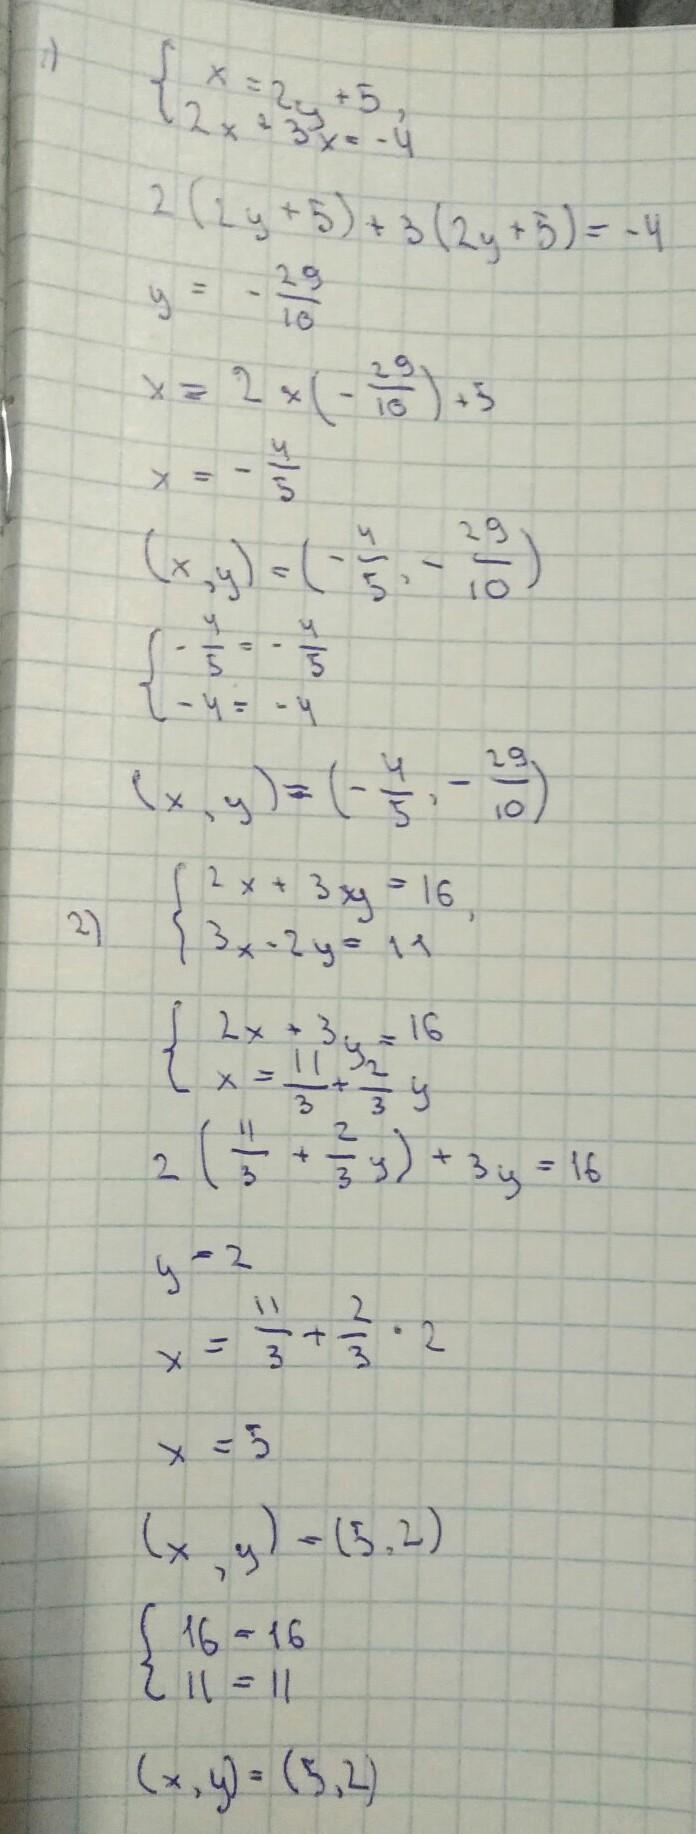 1)
{ x = 2y + 5,
2x + 3x = -4
2(2y + 5) + 3(2y + 5) = -4
y = - 29/10
x = 2 × (- 29/10) + 5
x = - 4/5
(x, y) = (- 4/5, - 29/10)
{ - 4/5 = - 4/5
-4 = -4
(x, y) = (- 4/5, - 29/10)
2) { 2x + 3xy = 16,
3x - 2y = 11
{ 2x + 3y = 16
x = 11/3 + 2/3 y
2(11/3 + 2/3 y) + 3y = 16
y = 2
x = 11/3 + 2/3 · 2
x = 5
(x, y) = (5, 2)
{ 16 = 16
11 = 11
(x, y) = (5, 2)